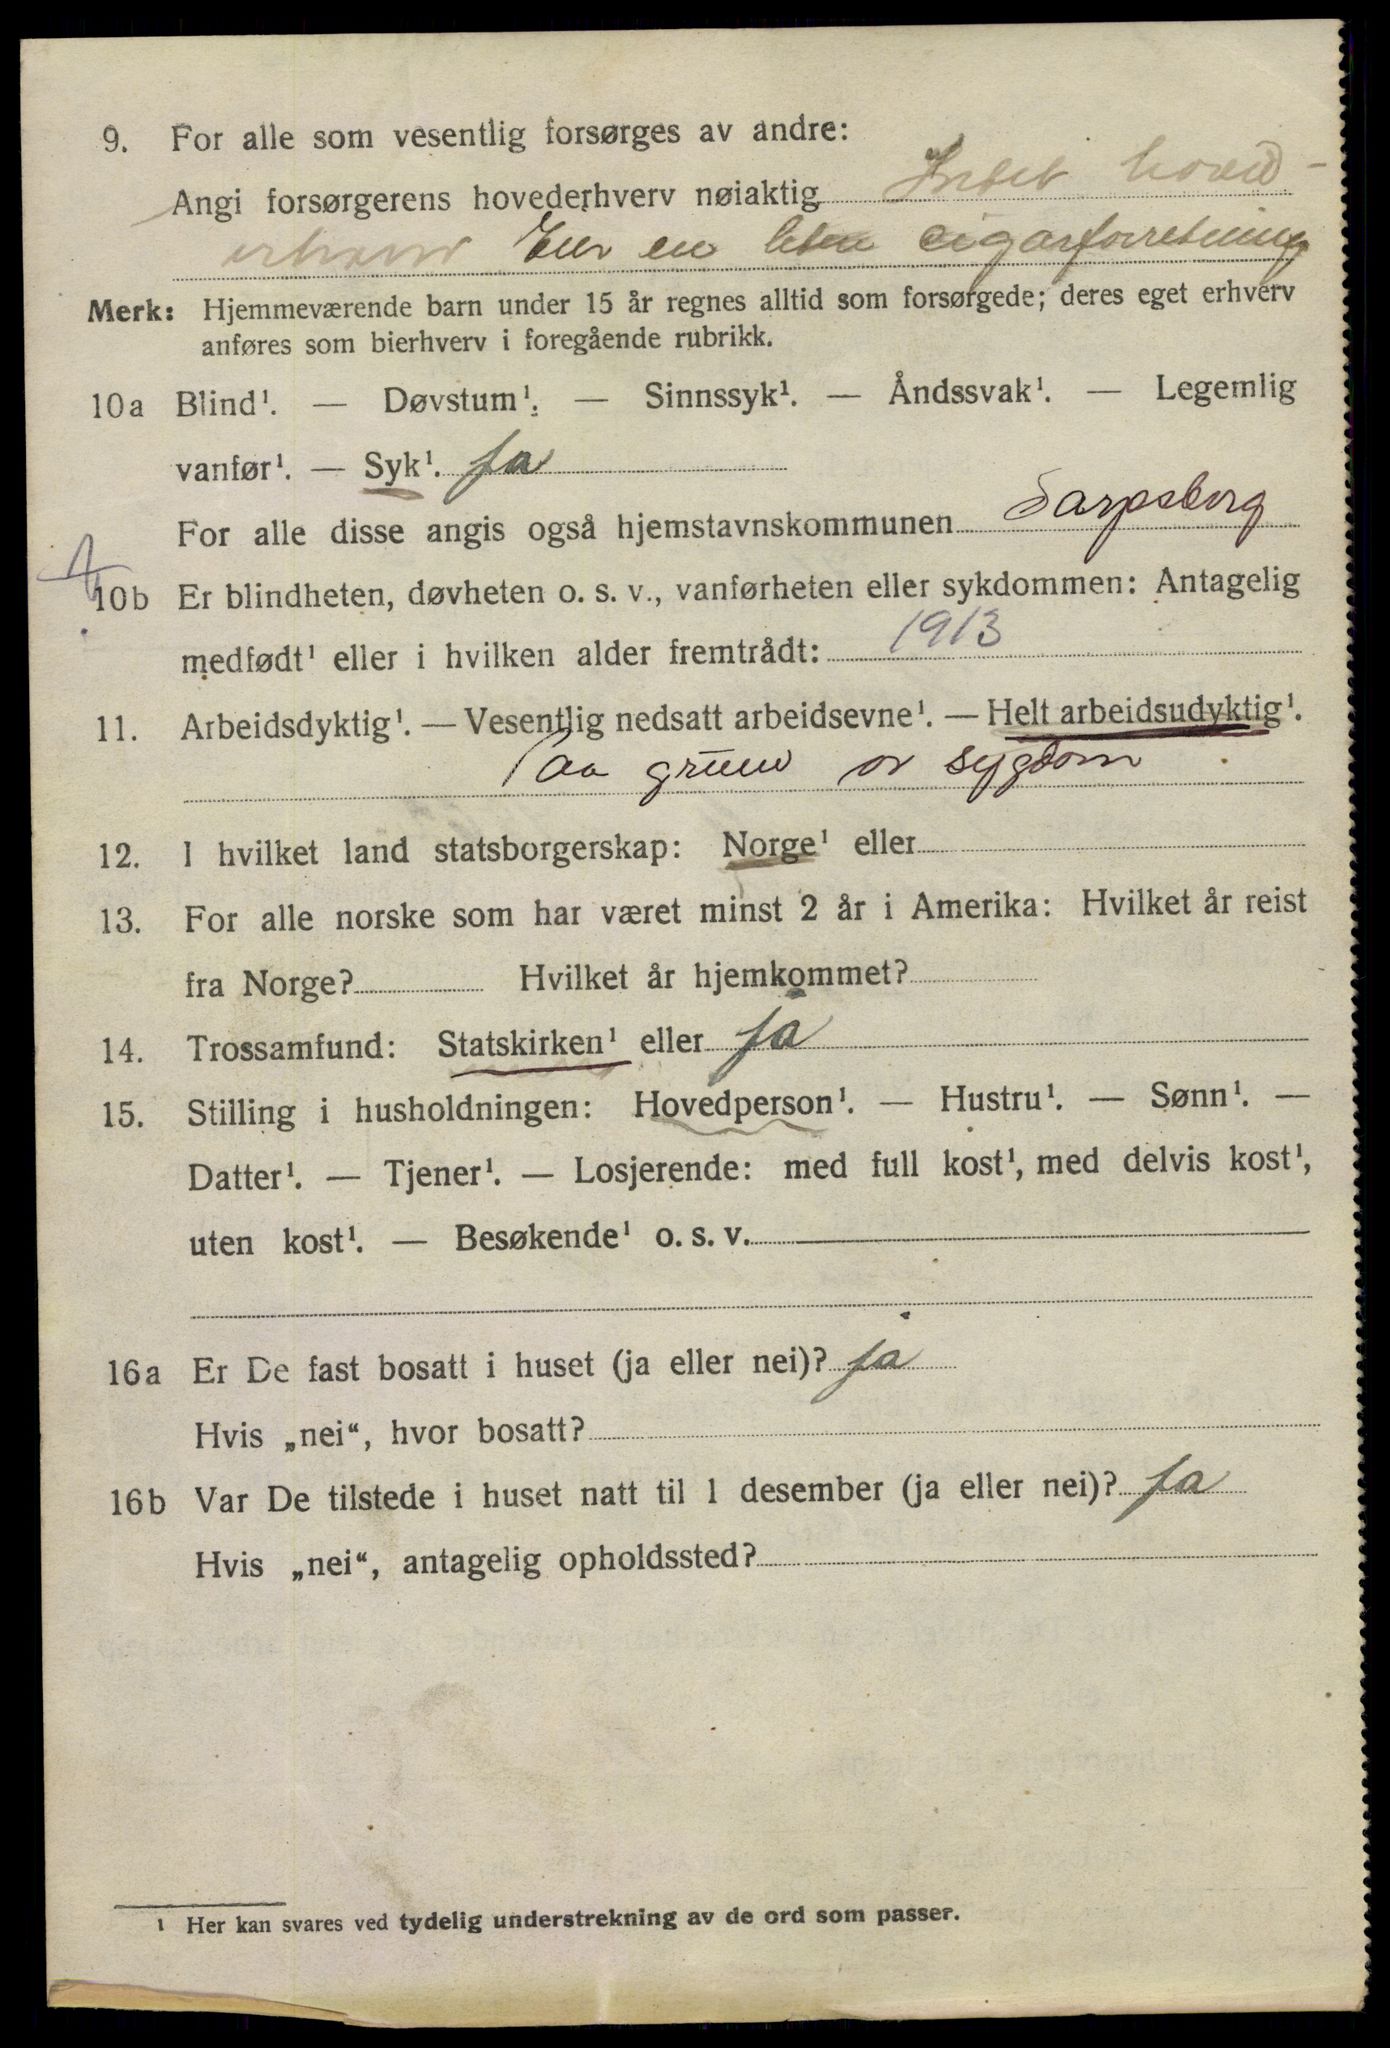 9. For alle som vesentlig forsørges av andre:
Angi forsørgerens hovederhverv nøiaktig Intet hoved-
erhverv Eier en liten cigarforretning
Merk: Hjemmeværende barn under 15 år regnes alltid som forsørgede; deres eget erhverv
anføres som bierhverv i foregående rubrikk.
10a Blind¹. — Døvstum¹. — Sinnssyk¹. — Åndssvak¹. — Legemlig
vanfør¹. — Syk¹. ja
For alle disse angis også hjemstavnskommunen Sarpsborg
10b Er blindheten, døvheten o. s. v., vanførheten eller sykdommen: Antagelig
medfødt¹ eller i hvilken alder fremtrådt: 1913
11. Arbeidsdyktig¹. — Vesentlig nedsatt arbeidsevne¹. — Helt arbeidsudyktig¹.
Paa grund av sygdom
12. I hvilket land statsborgerskap: Norge¹ eller
13. For alle norske som har været minst 2 år i Amerika: Hvilket år reist
fra Norge? Hvilket år hjemkommet?
14. Trossamfund: Statskirken¹ eller ja
15. Stilling i husholdningen: Hovedperson¹. — Hustru¹. — Sønn¹. —
Datter¹. — Tjener¹. — Losjerende: med full kost¹, med delvis kost¹,
uten kost¹. — Besøkende¹ o. s. v.
16a Er De fast bosatt i huset (ja eller nei)? ja
Hvis „nei“, hvor bosatt?
16b Var De tilstede i huset natt til 1 desember (ja eller nei)? ja
Hvis „nei“, antagelig opholdssted?
¹ Her kan svares ved tydelig understrekning av de ord som passer.